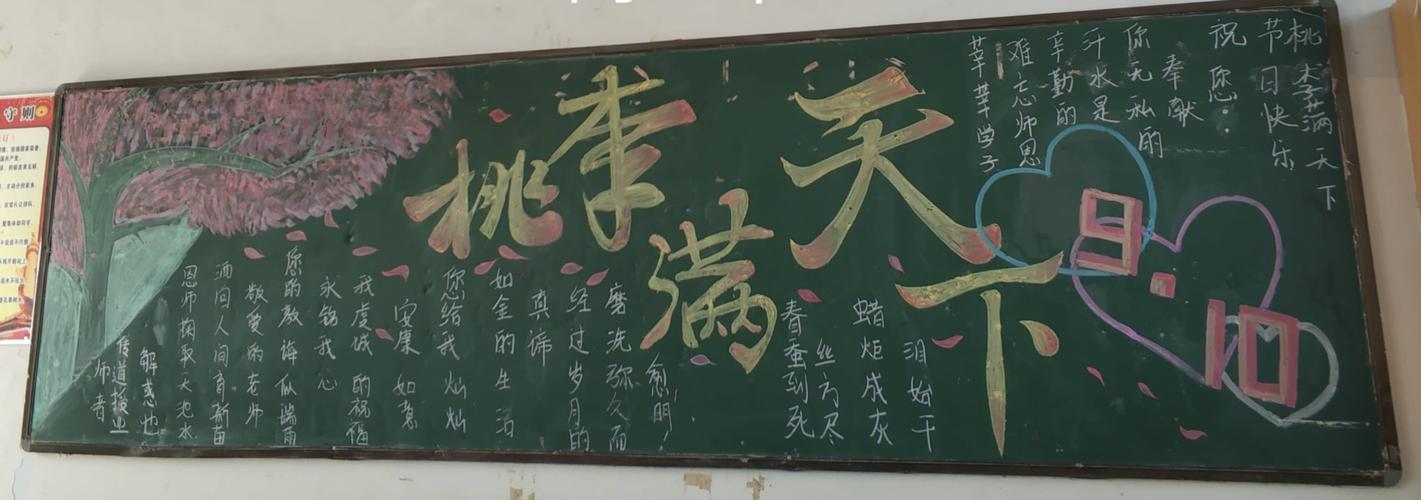 桃李满天下
莘莘学子
难忘师恩
辛勤的
汗水是
你无私的
奉献
祝您:
节日快乐
桃李满天下
9.10
师者
传道授业
解惑也
恩师掬取天池水
洒向人间育新苗
敬爱的老师
您的教诲似端雨
永铭我心
我虔诚的祝福
安康如意
您给我灿灿
如金的生活
真谛
经过岁月的
磨洗弥久而
愈明!
春蚕到死
丝方尽
蜡炬成灰
泪始干
守则